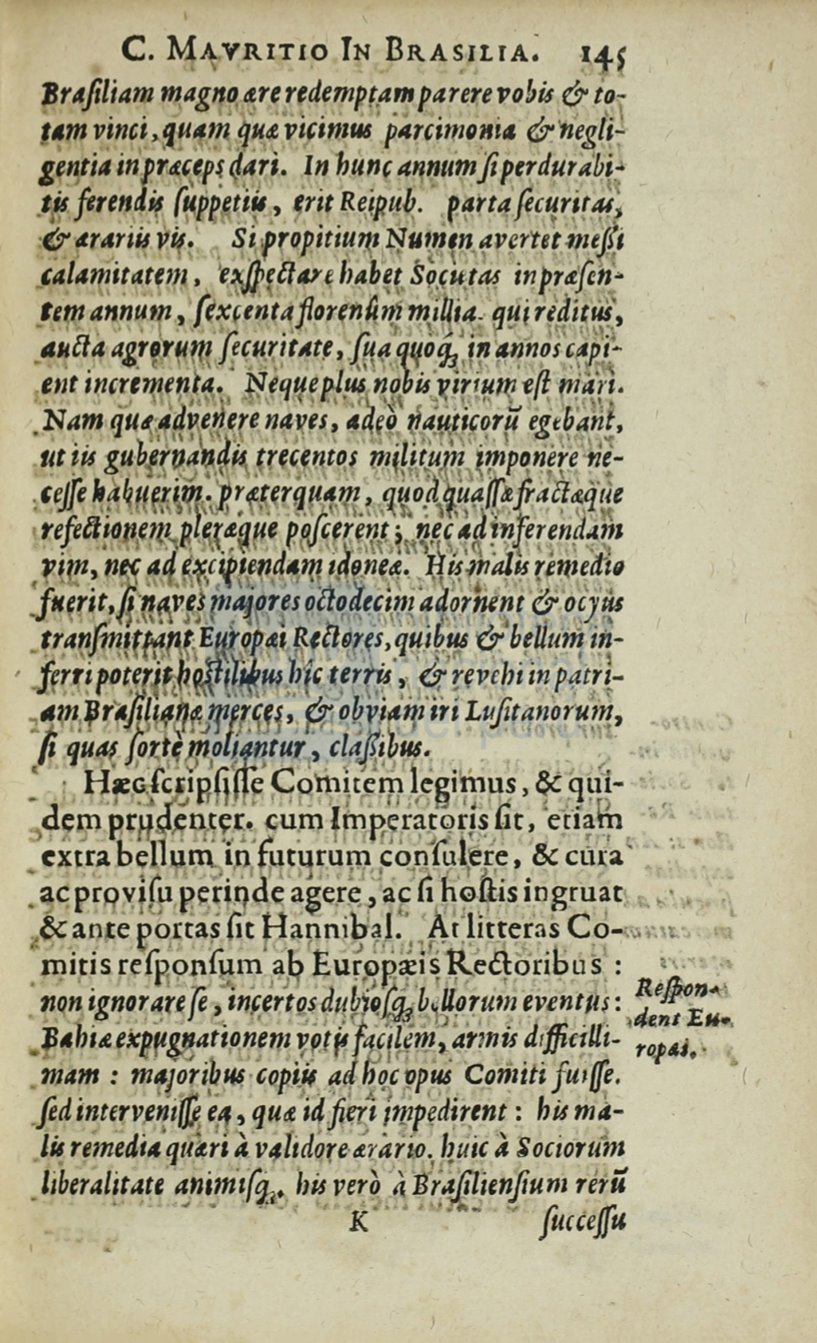 C. MAVRITIO IN BRASILIA. 145
Braſiliam magno ære redemptam parere vobis & to-
tam vinci, quam quæ vicimus parcimonia & negli-
gentia in præceps dari. In hunc annum ſi perdurabi-
tis ferendis ſuppetiis, erit Reipub. parta ſecuritas,
& ærariis vis. Si propitium Numen avertet meſſi
calamitatem, exſpectare habet Societas in præſen-
tem annum, ſexcenta florenûm millia. qui reditus,
aucta agrorum ſecuritate, ſua quoq́; in annos capi-
ent incrementa. Neque plus nobis virium eſt mari.
Nam quæ advenere naves, adeò nauticorū egebant,
ut iis gubernandis trecentos militum imponere ne-
ceſſe habuerim. præterquam, quod quaſſæ fractæque
refectionem pleræque poſcerent; nec ad inferendam
vim, nec ad excipiendam idoneæ. His malis remedio
fuerit, ſi naves majores octodecim adornent & ocyus
tranſmittant Europæi Rectores, quibus & bellum in-
ferri poterit hoſtilibus hîc terris, & revehi in patri-
am Braſilianæ merces, & obviam iri Luſitanorum,
ſi quas fortè moliantur, claſſibus.
Hæc ſcripſiſſe Comitem legimus, & qui-
dem prudenter. cum Imperatoris ſit, etiam
extra bellum in futurum conſulere, & cura
ac proviſu perinde agere, ac ſi hoſtis ingruat
& ante portas ſit Hannibal. At litteras Co-
mitis reſponſum ab Europæis Rectoribus :
non ignorare ſe, incertos dubioſq́; bellorum eventus:
Reſpon-
dent Eu-
ropæi.
Bahiæ expugnationem votis facilem, armis difficilli-
mam : majoribus copiis ad hoc opus Comiti fuiſſe.
ſed interveniſſe ea, quæ id fieri impedirent : his ma-
lis remedia quæri à validore ærario. huic à Sociorum
liberalitate animiſq́;. his verò à Braſilienſium rerū
K ſucceſſu